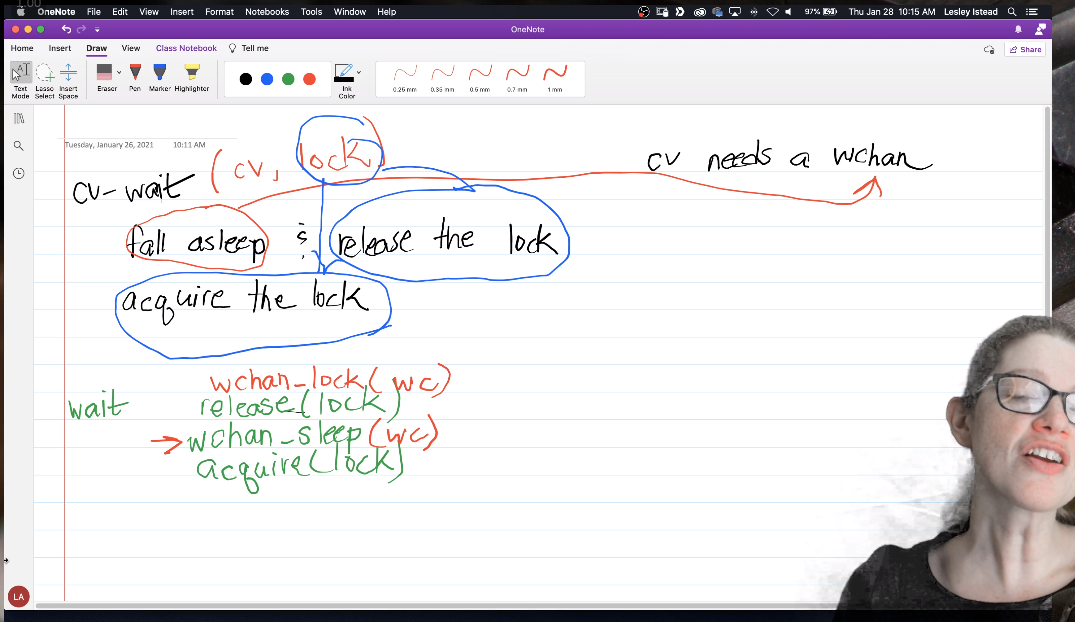 1.00
OneNote File Edit View Insert Format Notebooks Tools Window Help 97% Thu Jan 28 10:15 AM Lesley Istead
OneNote
Home Insert Draw View Class Notebook Tell me Share
Text Mode Lasso Select Insert Space Eraser Pen Marker Highlighter Ink Color 0.25 mm 0.35 mm 0.5 mm 0.7 mm 1 mm
Tuesday, January 26, 2021 10:11 AM
cv-wait (cv, lock)
cv needs a wchan
fall asleep & release the lock
acquire the lock
wchan_lock(wc)
wait release(lock)
wchan_sleep(wc)
acquire(lock)
LA